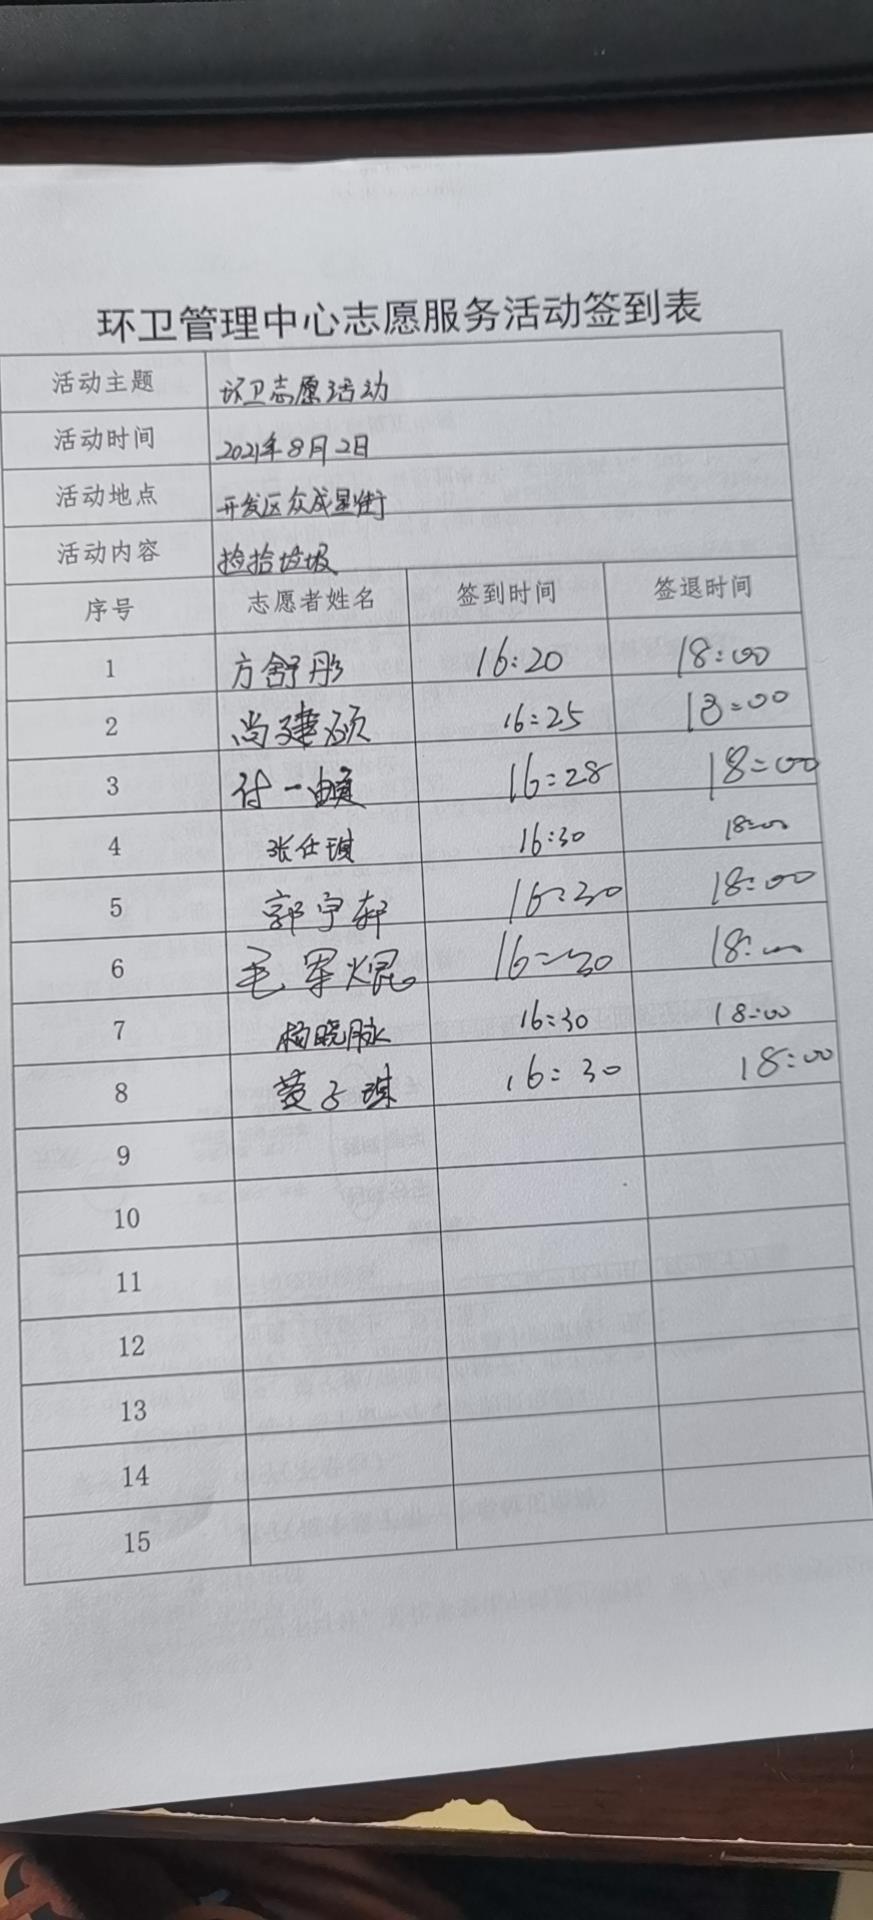 环卫管理中心志愿服务活动签到表
活动主题 环卫志愿活动
活动时间 2021年8月2日
活动地点 开发区众成星街
活动内容 捡拾垃圾
序号 志愿者姓名 签到时间 签退时间
1 方舒彤 16:20 18:00
2 尚建硕 16:25 18:00
3 付一 16:28 18:00
4 张仕琪 16:30 18:00
5 郭宇轩 16:30 18:00
6 毛军焜 16:30 18:00
7 杨晓脉 16:30 18:00
8 黄子琪 16:30 18:00
9
10
11
12
13
14
15